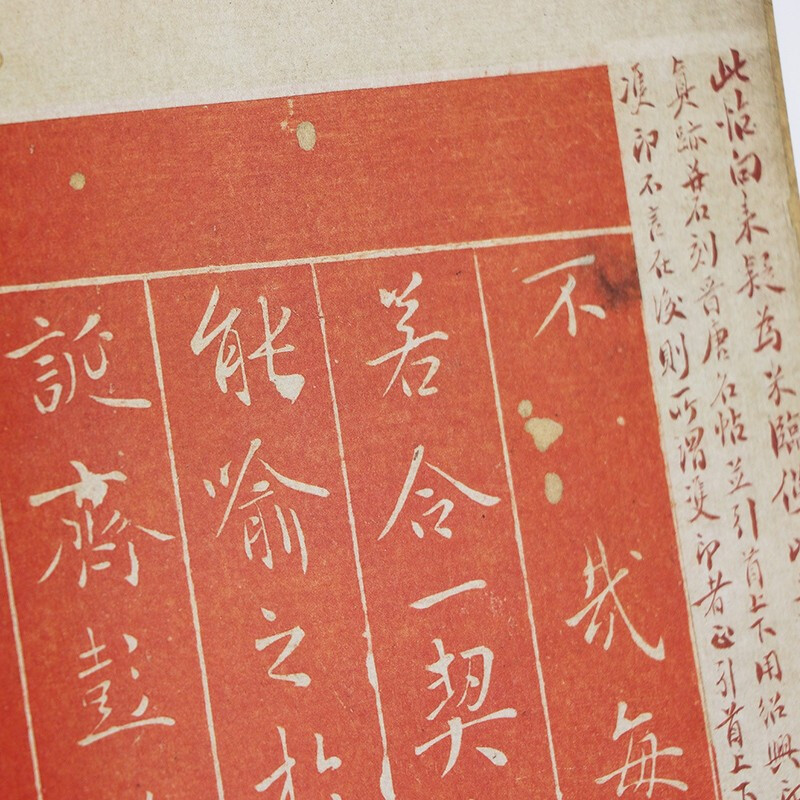 此帖向来疑為米臨但此
真跡并石刻晋唐名帖並引首上下用紹興
雙印不言在後則所謂雙印者正引首上下
不哉每
若合一契
能喻之於
誕齊彭